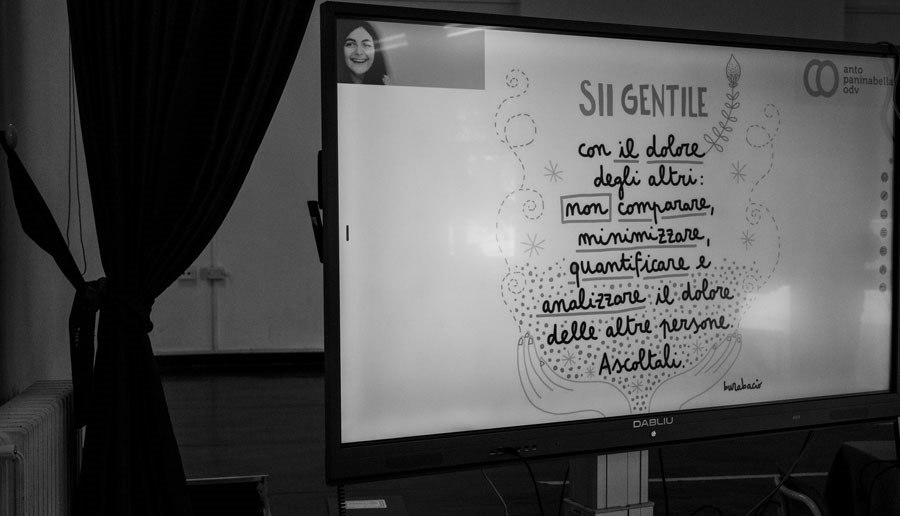 SII GENTILE
con il dolore
degli altri:
non comparare,
minimizzare,
quantificare e
analizzare il dolore
delle altre persone.
Ascoltali.
burabacio
anto
paninabella
odv
DABLIU